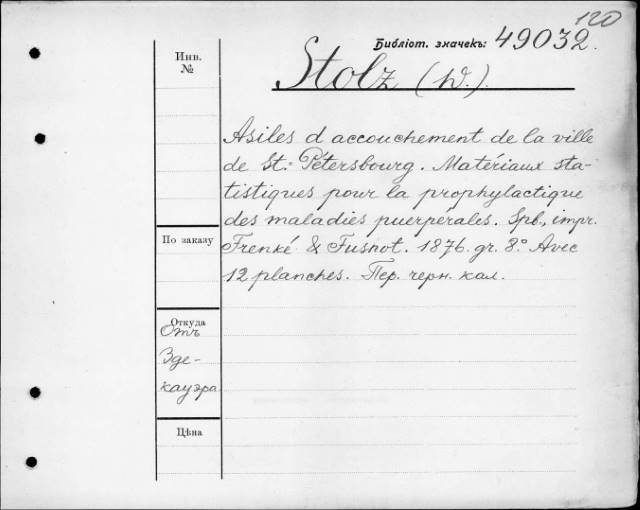 120
Библіот. значекъ: 49032.
Инв.
№
Stolz (W.).
Asiles d'accouchement de la ville
de St.-Pétersbourg. Matériaux sta-
tistiques pour la prophylactique
des maladies puerpérales. Spb., impr.
Frenké & Fusnot. 1876. gr. 8.° Avec
12 planches. Пер. черн. кал.
По заказу
Откуда
Отъ
Зде-
кауэра
Цѣна